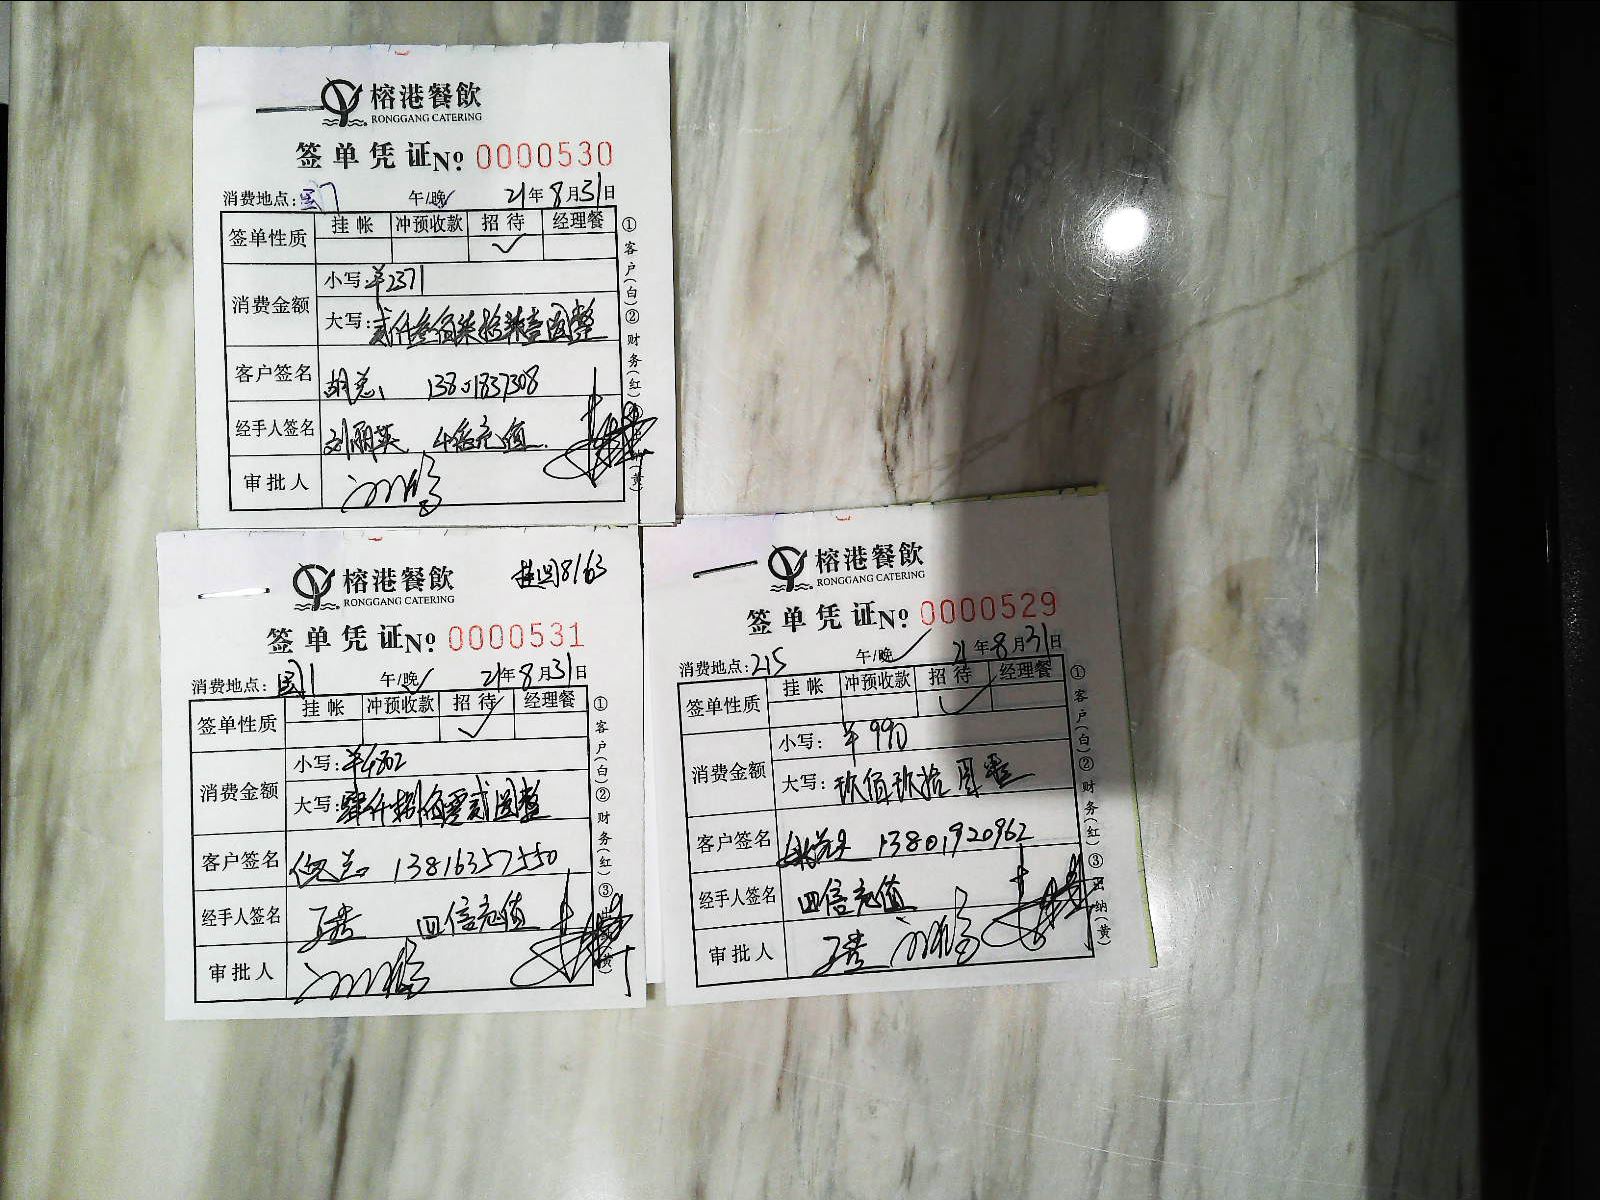 榕港餐飲
RONGGANG CATERING
签单凭证 No 0000530
消费地点: 午/晚 21年8月31日
签单性质 挂帐 冲预收款 招待 经理餐
✓
消费金额 小写:¥2371
大写:贰仟叁佰柒拾壹圆整
客户签名 胡总
经手人签名 刘丽英 4倍充值
审批人
①客户(白)②财务(红)
榕港餐飲
RONGGANG CATERING
8163
签单凭证 No 0000531
消费地点: 午/晚✓ 21年8月31日
签单性质 挂帐 冲预收款 招待 经理餐
✓
消费金额 小写:¥4802
大写:肆仟捌佰零贰圆整
客户签名 倪总 13816357550
经手人签名 四倍充值
审批人
①客户(白)②财务(红)③
榕港餐飲
RONGGANG CATERING
签单凭证 No 0000529
消费地点:215 午/晚✓ 21年8月31日
签单性质 挂帐 冲预收款 招待 经理餐
✓
消费金额 小写:¥990
大写:玖佰玖拾圆整
客户签名 13801920962
经手人签名 四倍充值
审批人
①客户(白)②财务(红)③出纳(黄)